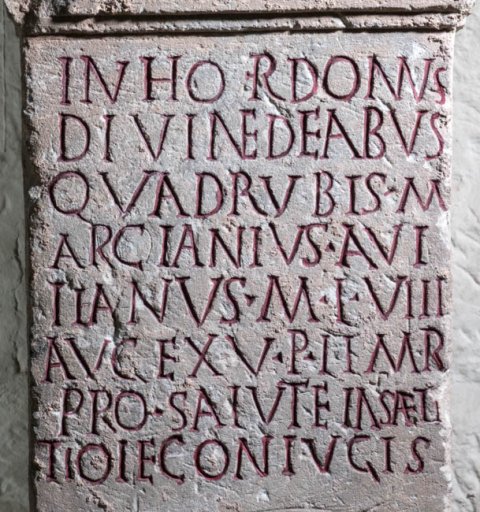 INHO·RDOMVS
DIVINEDEABVS
QVADRVBIS·M
ARCIANIVS·AVI
TIANVS·M·LVIII
AVGEXV·P·LLM·R
PRO·SALVT·E INSÆL
TIOLECONIVGIS